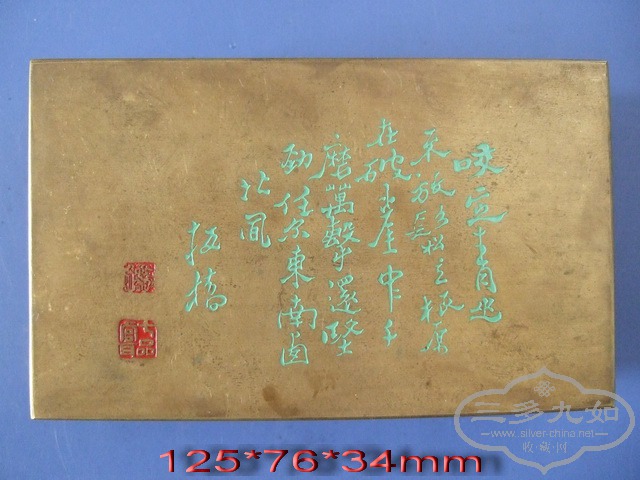 咬定青
放松立根原
在破崖中千
磨萬擊還堅
劲任尔東南
北
板橋
七品官耳
125*76*34mm
三多九如
www.silver-china.net
收藏网